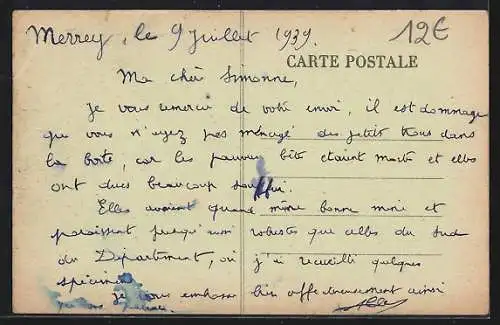 Merrey, le 9 Juillet 1939.
12€
CARTE POSTALE
Ma chèr Simonne,
Je vous remercie de votre envoi, il est dommage
que vous n'ayez pas ménagé des petits trous dans
la boite, car les pauvres bête etaient morte et elles
ont dues beaucoup souffrir.
Elles avaient quand même bonne mine et
paraissent presqu' aussi robustes que celles du Sud
du Département, où j'ai recueilli quelques
spécimens
je vous embrasse bien affectueusement ainsi
que vos